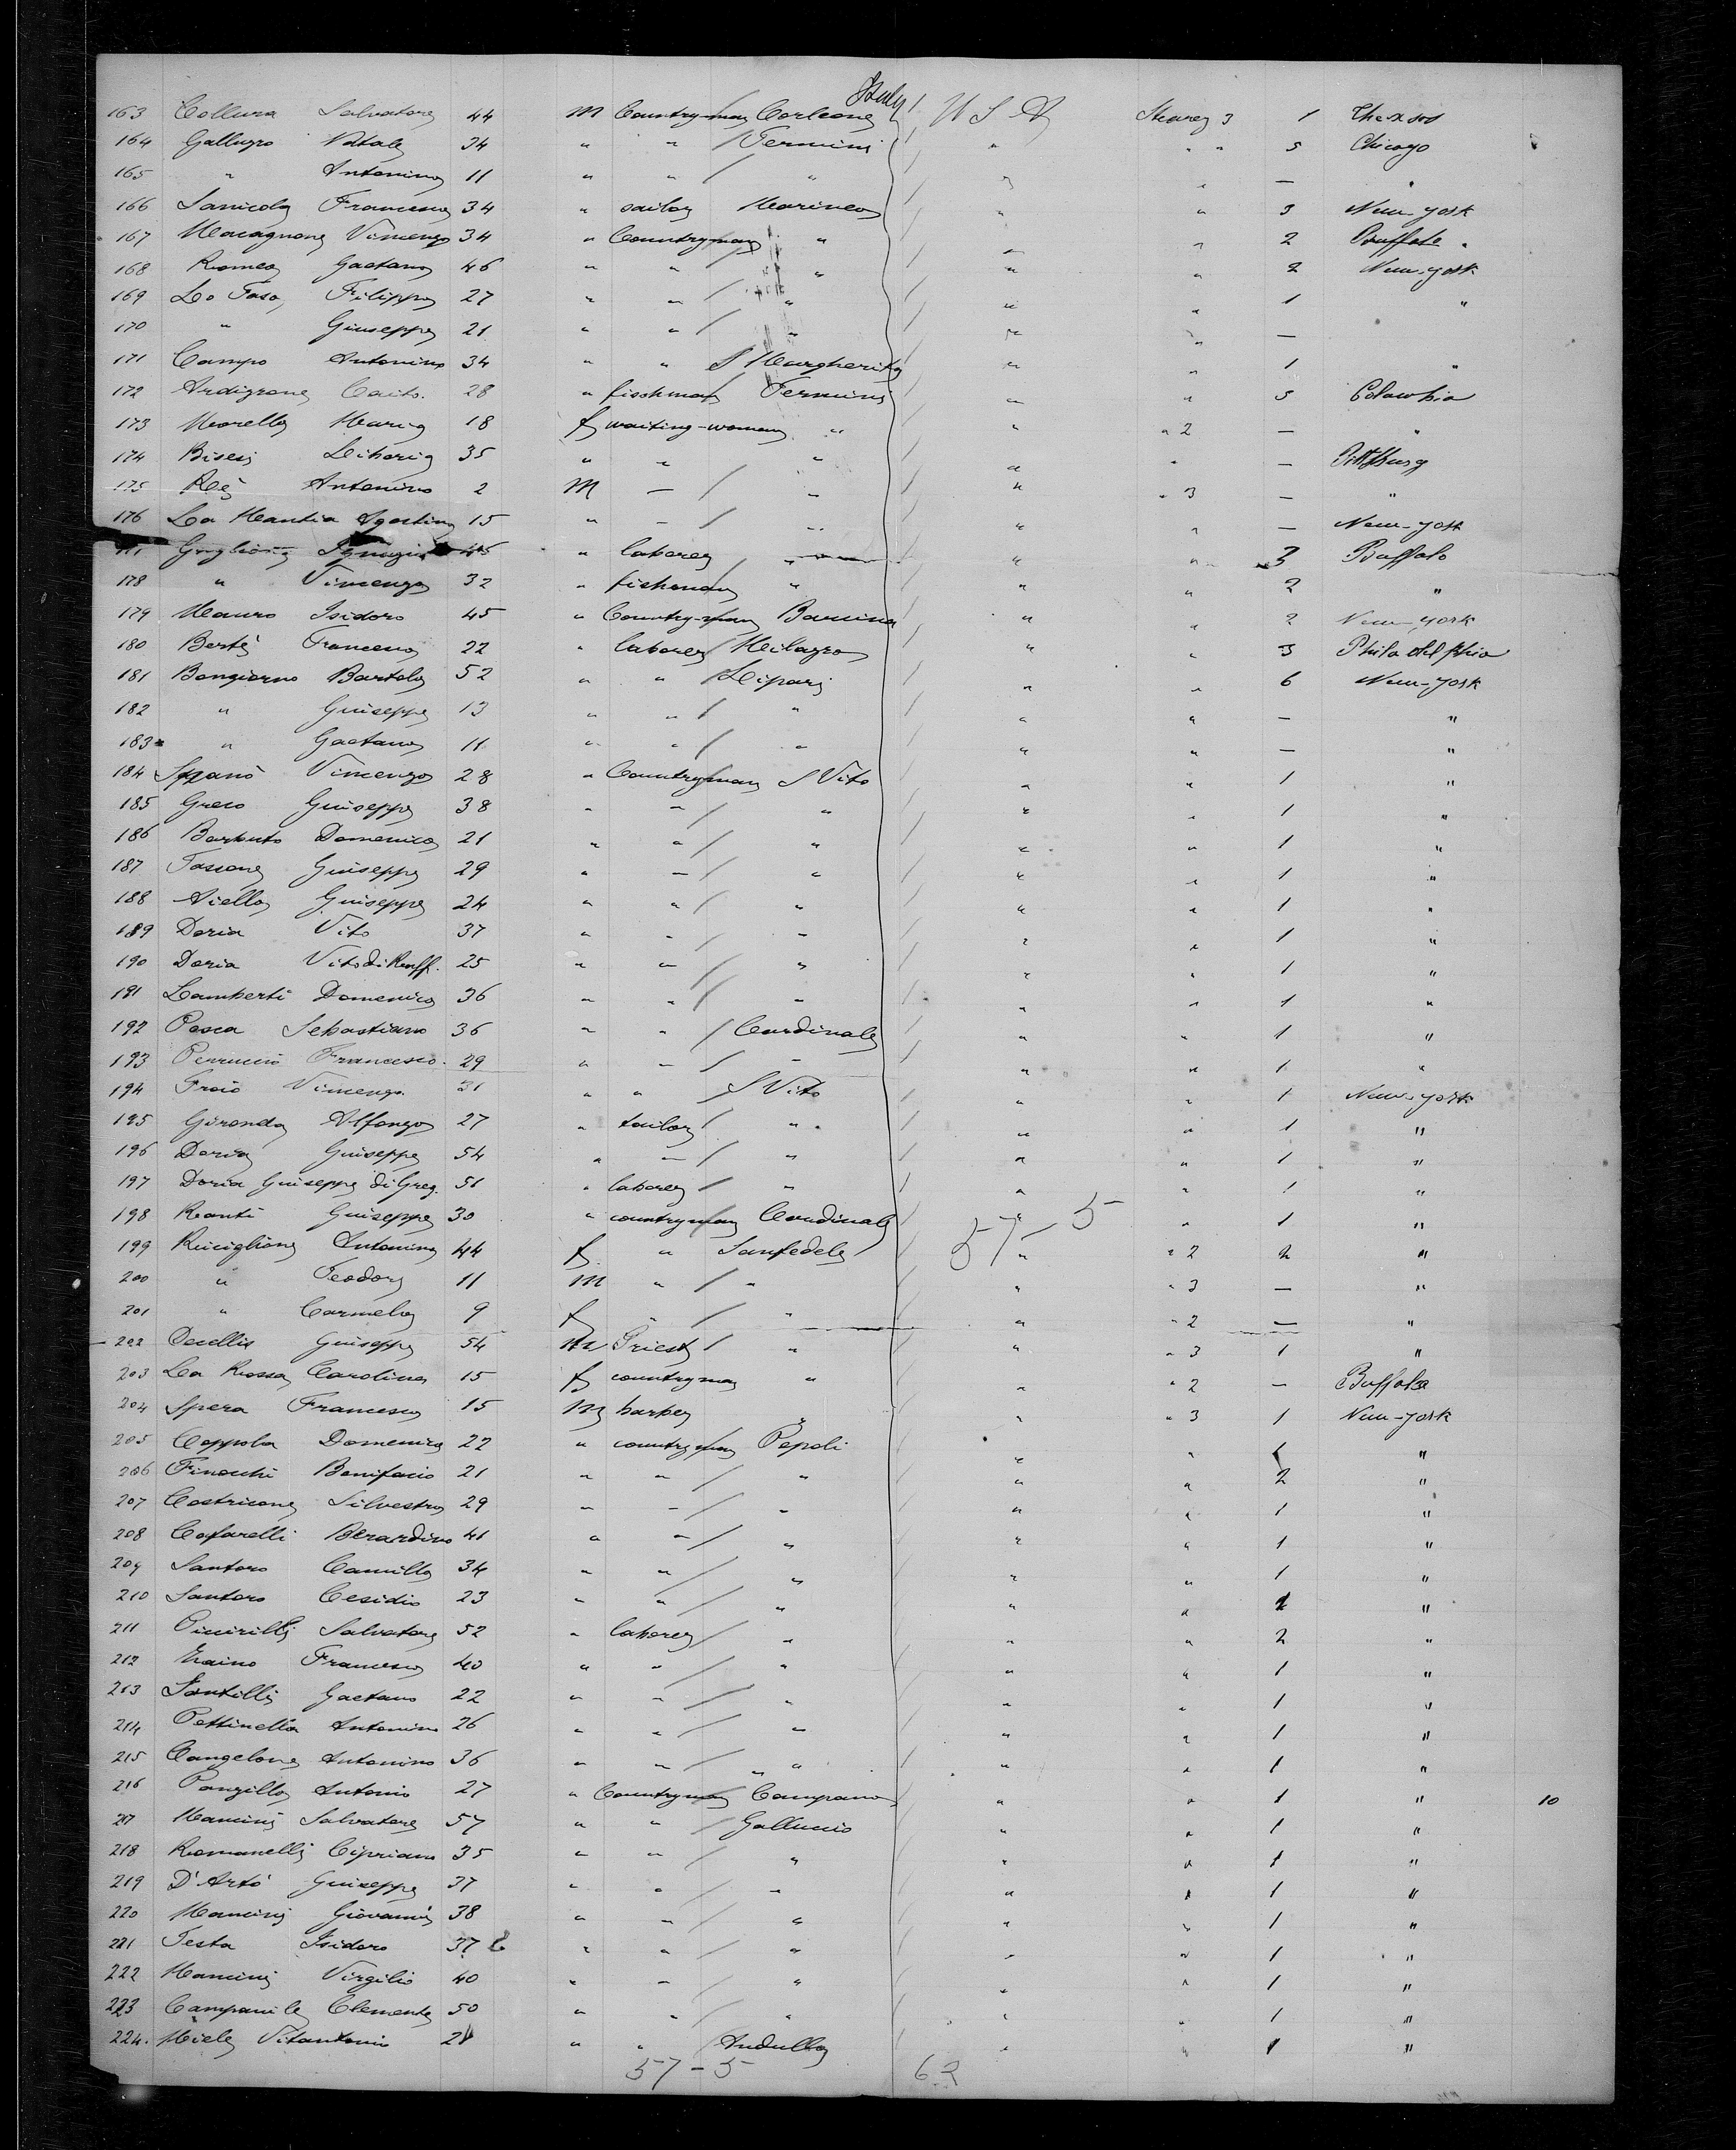 Italy
163 Collura Salvatore 44 m Countryman Corleone U S A Steareg 3 1 Thexsos
164 Gallegro Natale 34 " " Termini " " " 5 Chicago
165 " Antonino 11 " " " " " — "
166 Sanicola Francesco 34 " sailor Marineo " " 3 New-york
167 Macagnone Vincenzo 34 " Countryman " " " 2 Buffalo "
168 Romeo Gaetano 46 " " " " " 2 New-york
169 Lo Faso Filippo 27 " " " " " 1 "
170 " Giuseppe 21 " " " " " —
171 Campo Antonino 34 " " S Margherita " " 1 "
172 Ardizzone Caito. 28 " fischman Termini " " 5 Colowbia
173 Morello Maria 18 f waiting-woman " " " 2 — "
174 Bisesi Liboria 35 " " " " " — Pittsburg
175 Rei Antonino 2 M — " " " 3 — "
176 La Mantia Agostino 15 " — " " " — New-york
Ignazio 45 " laborer " " " 3 Buffalo
178 " Vincenzo 32 " fishman " " " 2 "
179 Mauro Isidoro 45 " Country-man Baucina " " 2 New-york
180 Berté Francesco 22 " laborer Milazzo " " 3 Philadelphia
181 Bongiorno Bartolo 52 " " Lipari " " 6 New-york
182 " Giuseppe 13 " " " " " — "
183 " Gaetano 11 " " " " " — "
184 Spanò Vincenzo 28 " Countryman S Vito " " 1 "
185 Greco Giuseppe 38 " " " " " 1 "
186 Barbuto Domenico 21 " " " " " 1 "
187 Fassone Giuseppe 29 " " " " " 1 "
188 Aiello Giuseppe 24 " " " " " 1 "
189 Doria Vito 37 " " " " " 1 "
190 Doria Vito di Raff. 25 " " " " " 1 "
191 Lamberti Domenico 36 " " " " " 1 "
192 Pesca Sebastiano 36 " " Cardinale " " 1 "
193 Perruccio Francesco. 29 " " " " " 1 "
194 Froio Vincenzo 31 " " S Vito " " 1 New-york
195 Gironda Alfonzo 27 " tailor " " " 1 "
196 Doria Giuseppe 54 " " " " " 1 "
197 Doria Giuseppe di Greg. 51 " laborer " " " 1 "
198 Ranti Giuseppe 30 " countryman Cardinale " " 1 "
57 - 5
199 Ruciglione Antonina 44 f. " Sanfedele " " 2 2 "
200 " Teodoro 11 m " " " " 3 — "
201 " Carmela 9 f " " " " 2 — "
202 Decellis Giuseppe 54 m Priest " " " 3 1 "
203 La Rossa Carolina 15 f countryman " " " 2 — Buffaloe
204 Spera Francesco 15 m barber " " " 3 1 New-york
205 Coppola Domenico 22 " countryman Pepoli " " 1 "
206 Finocchi Bonifacio 21 " " " " " 2 "
207 Castricone Silvestro 29 " " " " " 1 "
208 Cafarelli Berardino 41 " " " " " 1 "
209 Santoro Camillo 34 " " " " " 1 "
210 Santoro Cesidio 23 " " " " " 2 "
211 Picirilli Salvatore 52 " laborer " " " 2 "
212 Francesco 40 " " " " " 1 "
213 Santilli Gaetano 22 " " " " " 1 "
214 Pettinella Antonino 26 " " " " " 1 "
215 Cangelone Antonino 36 " " " " " 1 "
216 Panzillo Antonio 27 " Countryman Campano " " 1 " 10
217 Mancini Salvatore 57 " " Galluccio " " 1 "
218 Romanelli Cipriano 35 " " " " " 1 "
219 D'Artò Giuseppe 37 " " " " " 1 "
220 Mancini Giovanni 38 " " " " " 1 "
221 Testa Isidoro 37 " " " " " 1 "
222 Mancini Virgilio 40 " " " " " 1 "
223 Campanile Clemente 50 " " " " " 1 "
224. Miele Vitantonio 21 " " Andulla " " 1 "
57-5 62